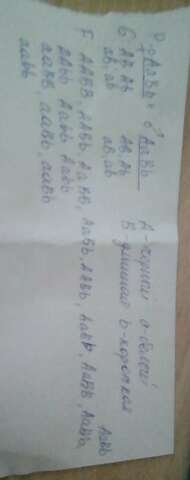 P ♀ AaBb × ♂ AaBb
G AB, Ab AB, Ab
aB, ab aB, ab
F AABB, AABb, AaBB, AaBb, AABb, AaBB, AaBb, AaBb
AAbb Aabb Aabb
aaBB, aaBb, aaBb
aabb
A- a-белый
B-длинная b-короткая